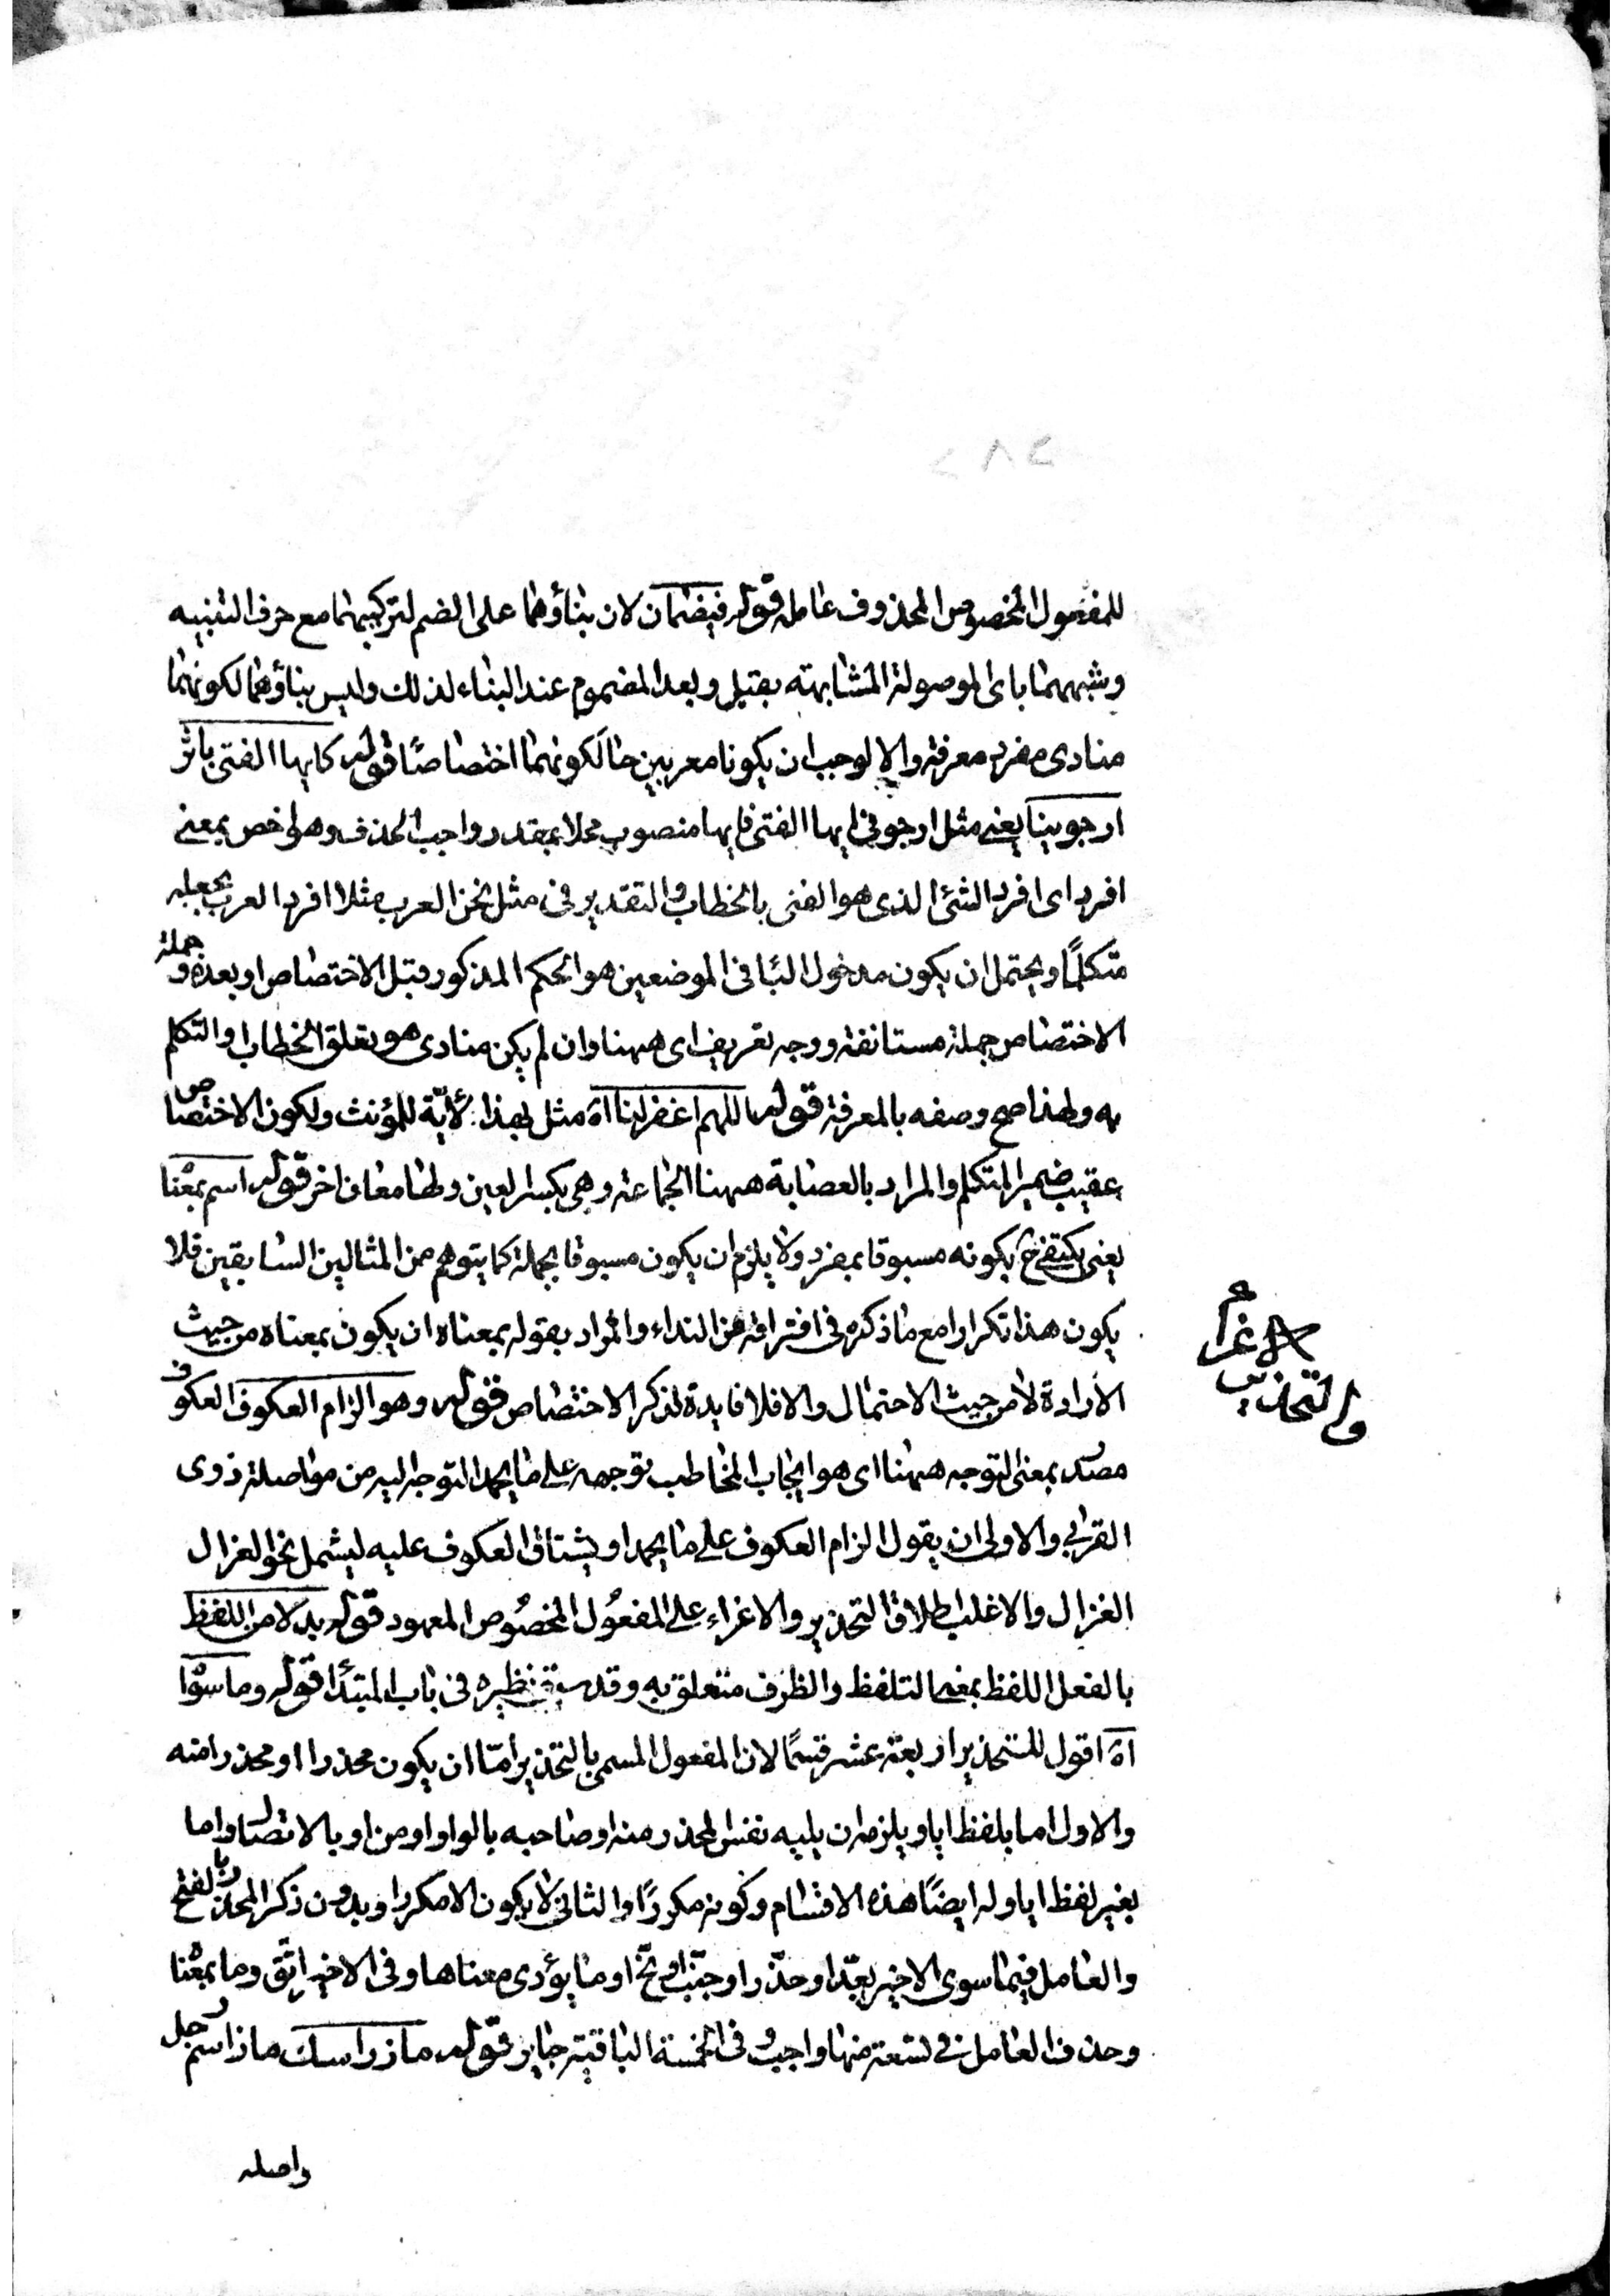 للمفعول المخصوص المحذوف عامله قوله فيضمان لان بناؤهما على الضم لتركيبهما مع حرف التنبيه
وشبههما باى الموصولة المشابهته بقبل وبعد المضموم عند البناء لذلك وليس بناؤهما لكونهما
منادى مفرد معرفة والا لوجب ان يكونا معربين حال كونهما اختصاصًا قوله كايها الفتى باثر
ارجوينا يعنى مثل ارجونى ايها الفتى فايها منصوب محلا بمقدر واجب الحذف وهو اخص بمعنى
افرد اى افرد الشئ الذى هو الفتى بالخطاب والتقدير فى مثل نحن العرب مثلا افرد العرب بجعله
متكلمًا ويحتمل ان يكون مدخول البا فى الموضعين هو الحكم المذكور قبل الاختصاص او بعده وجملة
الاختصاص جملة مستانفة ووجه تعريف اى ههنا وان لم يكن منادى هو تعلق الخطاب والتكلم
به ولهذا صح وصفه بالمعرفة قوله اللهم اغفر لنا اه مثل بهذا لأيّة للمؤنث ولكون الاختصاص
عقيب ضمير المتكلم والمراد بالعصابة ههنا الجماعة وهى بكسر العين ولها معان اخر قوله اسم بمعناه
يعنى يكتفى ح بكونه مسبوقا بمفرد ولا يلزم ان يكون مسبوقا بجملة كما يتوهم من المثالين السابقين فلا
يكون هذا تكرارا مع ما ذكره فى افتراقه من النداء والمراد بقوله بمعناه ان يكون بمعناه من حيث
الارادة لا من حيث الاحتمال والا فلا فايدة لذكر الاختصاص قوله وهو الزام العكوف العكوف
مصدر بمعنى التوجه ههنا اى هو ايجاب المخاطب توجهه على ما يحمد التوجه اليه من مواصلة ذوى
القربى والاولى ان يقول الزام العكوف على ما يحمد او يشتاق العكوف عليه ليشمل نحو الغزال
الغزال والاغلب اطلاق التحذير والاغراء على المفعول المخصوص المعهود قوله بدلا من اللفظ
بالفعل اللفظ بمعنى التلفظ والظرف متعلق به وقد سبق نظيره فى باب المبتدا قوله وما سواه
اه اقول للتحذير اربعة عشر قسمًا لان المفعول المسمى بالتحذير امّا ان يكون محذرا او محذرا منه
والاول اما بلفظ ايا ويلزمه ان يليه نفس المحذر منه او صاحبه بالواو او من او بالاتصال واما
بغير لفظ ايا وله ايضًا هذه الاقسام وكونه مكررًا والثانى لا يكون الا مكررا وبدون ذكر المحذر بالفتح
والعامل فيما سوى الاخير بعّد او حذّر او جنّب او نحّ او ما يؤدى معناها وفى الاخير اتّق وما بمعناه
وحذف العامل فى تسعة منها واجب وفى الخمسة الباقية جايز قوله ماز راسك ماز اسم رجل
واصله
الاغراء
والتحذير